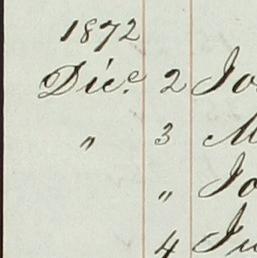 1872
Dice 2 Jo
" 3 M
" Jo
4 Ju